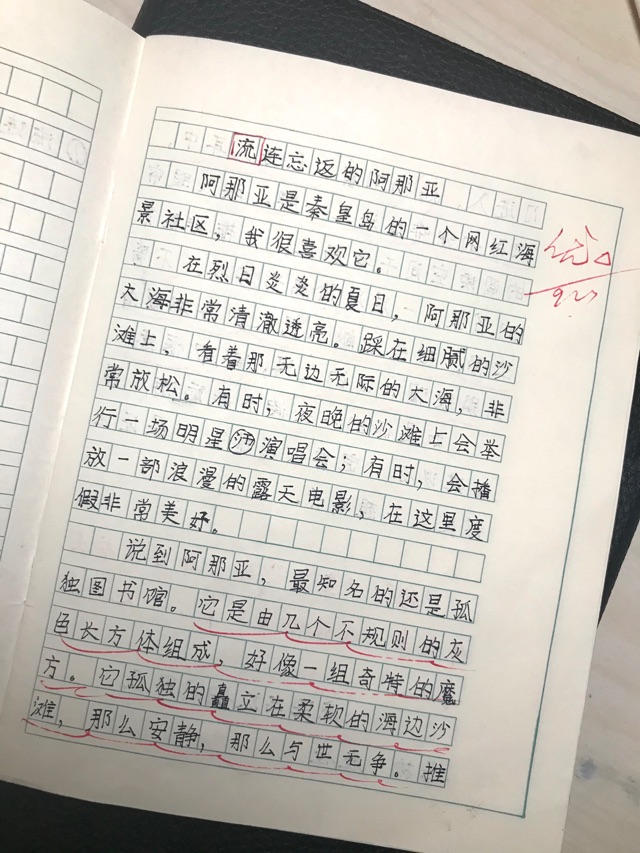 流连忘返的阿那亚
阿那亚是秦皇岛的一个网红海
景社区，我很喜欢它。
在烈日炎炎的夏日，阿那亚的
大海非常清澈透亮。踩在细腻的沙
滩上，看着那无边无际的大海，非
常放松。有时，夜晚的沙滩上会举
行一场明星演唱会；有时，会播
放一部浪漫的露天电影，在这里度
假非常美好。
说到阿那亚，最知名的还是孤
独图书馆。它是由几个不规则的灰
色长方体组成，好像一组奇特的魔
方。它孤独的矗立在柔软的海边沙
滩，那么安静，那么与世无争。推
优